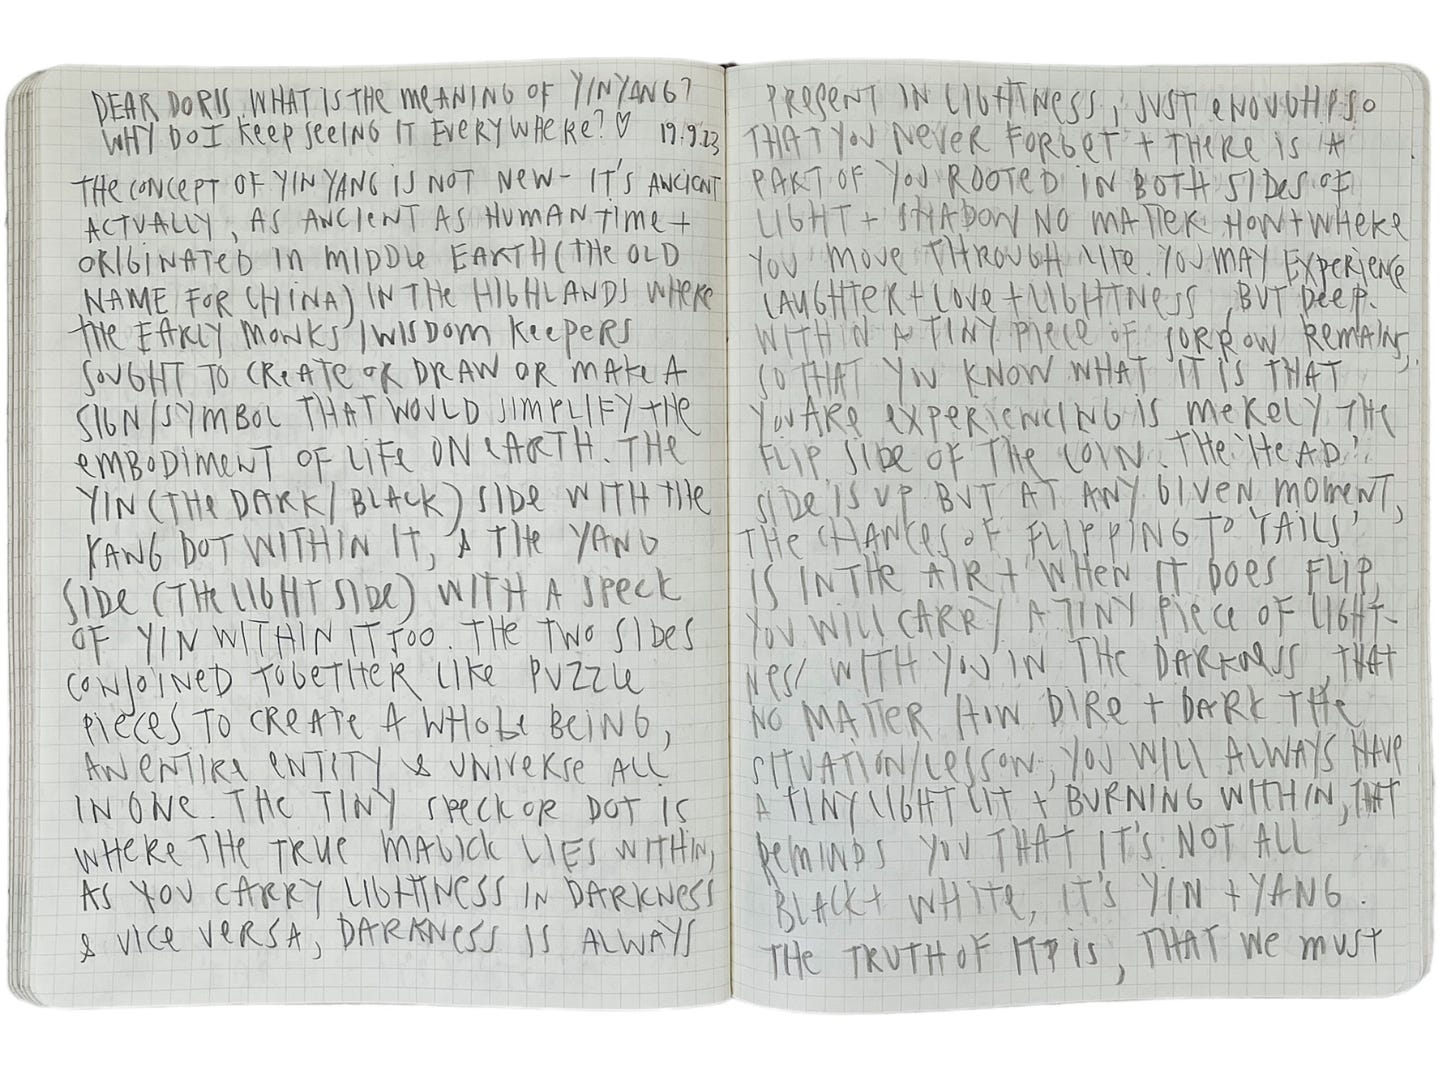 DEAR DORIS, WHAT IS THE MEANING OF YINYANG?
WHY DO I KEEP SEEING IT EVERYWHERE? ♡ 19.9.23
THE CONCEPT OF YINYANG IS NOT NEW - IT'S ANCIENT
ACTUALLY, AS ANCIENT AS HUMAN TIME +
ORIGINATED IN MIDDLE EARTH (THE OLD
NAME FOR CHINA) IN THE HIGHLANDS WHERE
THE EARLY MONKS/WISDOM KEEPERS
SOUGHT TO CREATE OR DRAW OR MAKE A
SIGN/SYMBOL THAT WOULD SIMPLIFY THE
EMBODIMENT OF LIFE ON EARTH. THE
YIN (THE DARK/BLACK) SIDE WITH THE
YANG DOT WITHIN IT, & THE YANG
SIDE (THE LIGHT SIDE) WITH A SPECK
OF YIN WITHIN IT TOO. THE TWO SIDES
CONJOINED TOGETHER LIKE PUZZLE
PIECES TO CREATE A WHOLE BEING,
AN ENTIRE ENTITY & UNIVERSE ALL
IN ONE. THE TINY SPECK OR DOT IS
WHERE THE TRUE MAGICK LIES WITHIN,
AS YOU CARRY LIGHTNESS IN DARKNESS
& VICE VERSA, DARKNESS IS ALWAYS
PRESENT IN LIGHTNESS, JUST ENOUGH SO
THAT YOU NEVER FORGET + THERE IS A
PART OF YOU ROOTED IN BOTH SIDES OF
LIGHT + SHADOW NO MATTER HOW + WHERE
YOU MOVE THROUGH LIFE. YOU MAY EXPERIENCE
LAUGHTER + LOVE + LIGHTNESS, BUT DEEP
WITHIN A TINY PIECE OF SORROW REMAINS,
SO THAT YOU KNOW WHAT IT IS THAT
YOU ARE EXPERIENCING IS MERELY THE
FLIP SIDE OF THE COIN. THE 'HEAD'
SIDE IS UP BUT AT ANY GIVEN MOMENT,
THE CHANCES OF FLIPPING TO 'TAILS'
IS IN THE AIR + WHEN IT DOES FLIP,
YOU WILL CARRY A TINY PIECE OF LIGHT-
NESS WITH YOU IN THE DARKNESS, THAT
NO MATTER HOW DIRE + DARK THE
SITUATION/LESSON, YOU WILL ALWAYS HAVE
A TINY LIGHT LIT + BURNING WITHIN, THAT
REMINDS YOU THAT IT'S NOT ALL
BLACK + WHITE, IT'S YIN + YANG.
THE TRUTH OF IT IS, THAT WE MUST